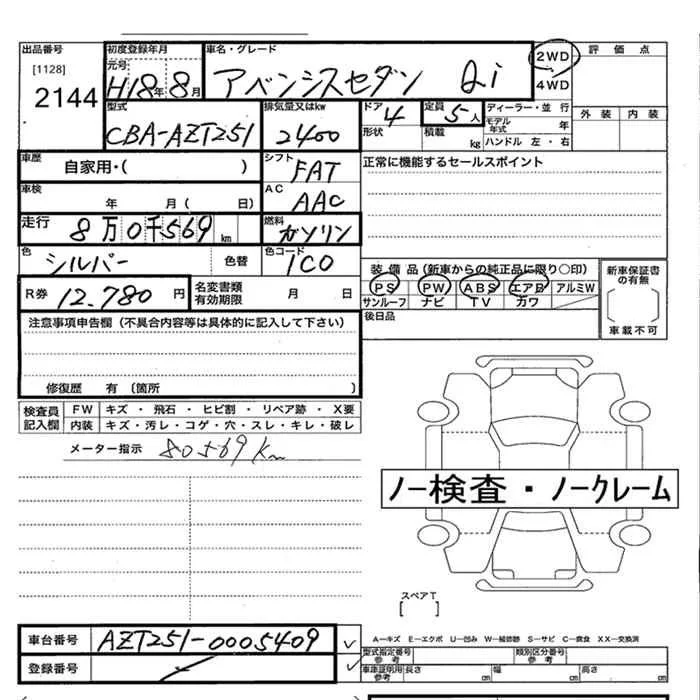 出品番号 初度登録年月 車名・グレード 2WD 評価点
[1128] 元号 H18年8月 アベンシスセダン Qi 4WD
2144
型式 排気量又はkw ドア 4 定員 5人 ディーラー・並行 外装 内装
CBA-AZT251 2400 形状 積載 kg モデル年式 年
ハンドル 左・右
車歴 自家用・( ) シフト FAT 正常に機能するセールスポイント
車検 年 月( 日) AC AAC
走行 8万0千569km 燃料 ガソリン
色 シルバー 色替 色コード 1C0
装備品(新車からの純正品に限り○印) 新車保証書の有無
R券 12.780円 名変書類有効期限 月 日 PS PW ABS エアB アルミW
サンルーフ ナビ TV カワ
後日品 車載不可
注意事項申告欄(不具合内容等は具体的に記入して下さい)
修復歴 有(箇所 )
検査員記入欄 FW キズ・飛石・ヒビ割・リペア跡・X要
内装 キズ・汚レ・コゲ・穴・スレ・キレ・破レ
メーター指示 80569Km
ノー検査・ノークレーム
スペアT
[ ]
車台番号 AZT251-0005409 A—キズ E—エクボ U—凹み W—補修跡 S—サビ C—腐食 XX—交換済
登録番号 型式指定番号 参考 類別区分番号 参考
車庫証明用 参考 長さ cm 幅 cm 高さ cm